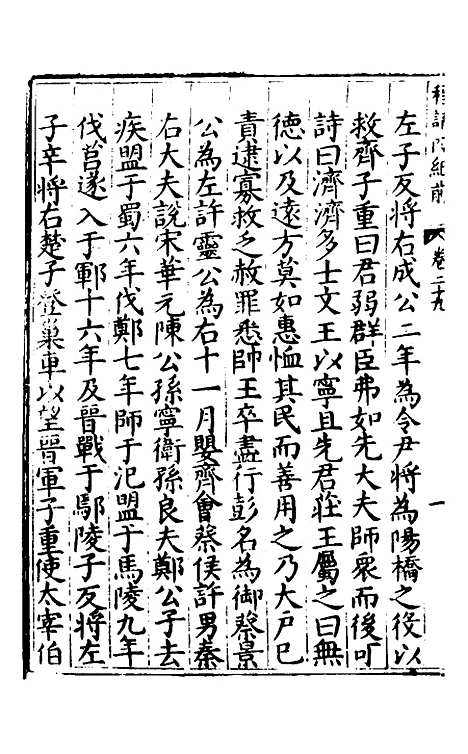 卷二十九
一
左子反將右成公二年為令尹將為陽橋之役以
救齊子重曰君弱群臣弗如先大夫師衆而後可
詩曰濟濟多士文王以寧且先君莊王屬之曰無
德以及遠方莫如惠恤其民而善用之乃大戸已
責逮寡救乏赦罪悉師王卒盡行彭名為御蔡景
公為左許靈公為右十一月嬰齊會蔡侯許男秦
右大夫說宋華元陳公孫寧衛孫良夫鄭公子去
疾盟于蜀六年伐鄭七年師于汜盟于馬陵九年
伐莒遂入于鄆十六年及晉戰于鄢陵子反將左
子辛將右楚子登巢車以望晉軍子重使太宰伯